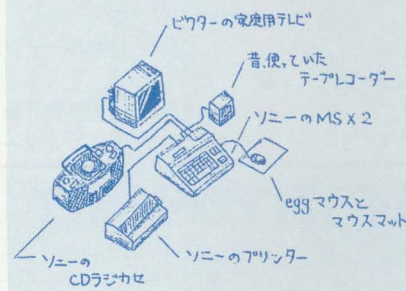 ビクターの家庭用テレビ
昔、使っていた
テープレコーダー
ソニーのMSX2
eggマウスと
マウスマット
ソニーのプリンター
ソニーの
CDラジカセ